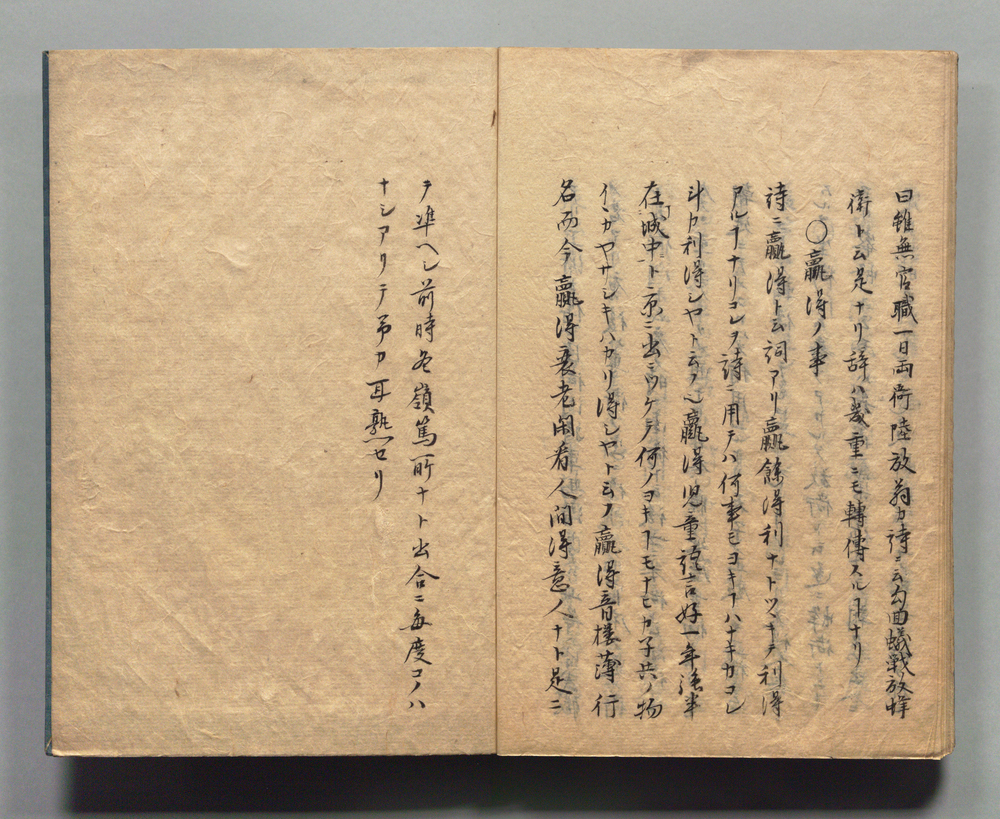 曰雖無官職一日両衙陸放翁カ詩ニ云勾回蟻戦放蜂
衙ト云是ナリ辞ハ幾重ニモ轉傳スルヿナリ
〇贏得ノ事
詩ニ贏得ト云詞アリ贏餘得利ナトツヽキテ利得
アルヿナリコレヲ詩ニ用テハ何事モヨキヿハナキカコレ
斗カ利得シヤト云ノ贏得児童語音好一年強半
在城中ト京ニ出ニツケテ何ノヨキヿモナヒカ子共ノ物
イヽカヤサシキハカリ得シヤト云ノ贏得青樓薄行
名而今贏得衰老閑看人間得意人ナト是ニ
テ準ヘシ前時冬嶺篤所ナト出合ニ毎度コノハ
ナシアリテ吊カ耳熟セリ